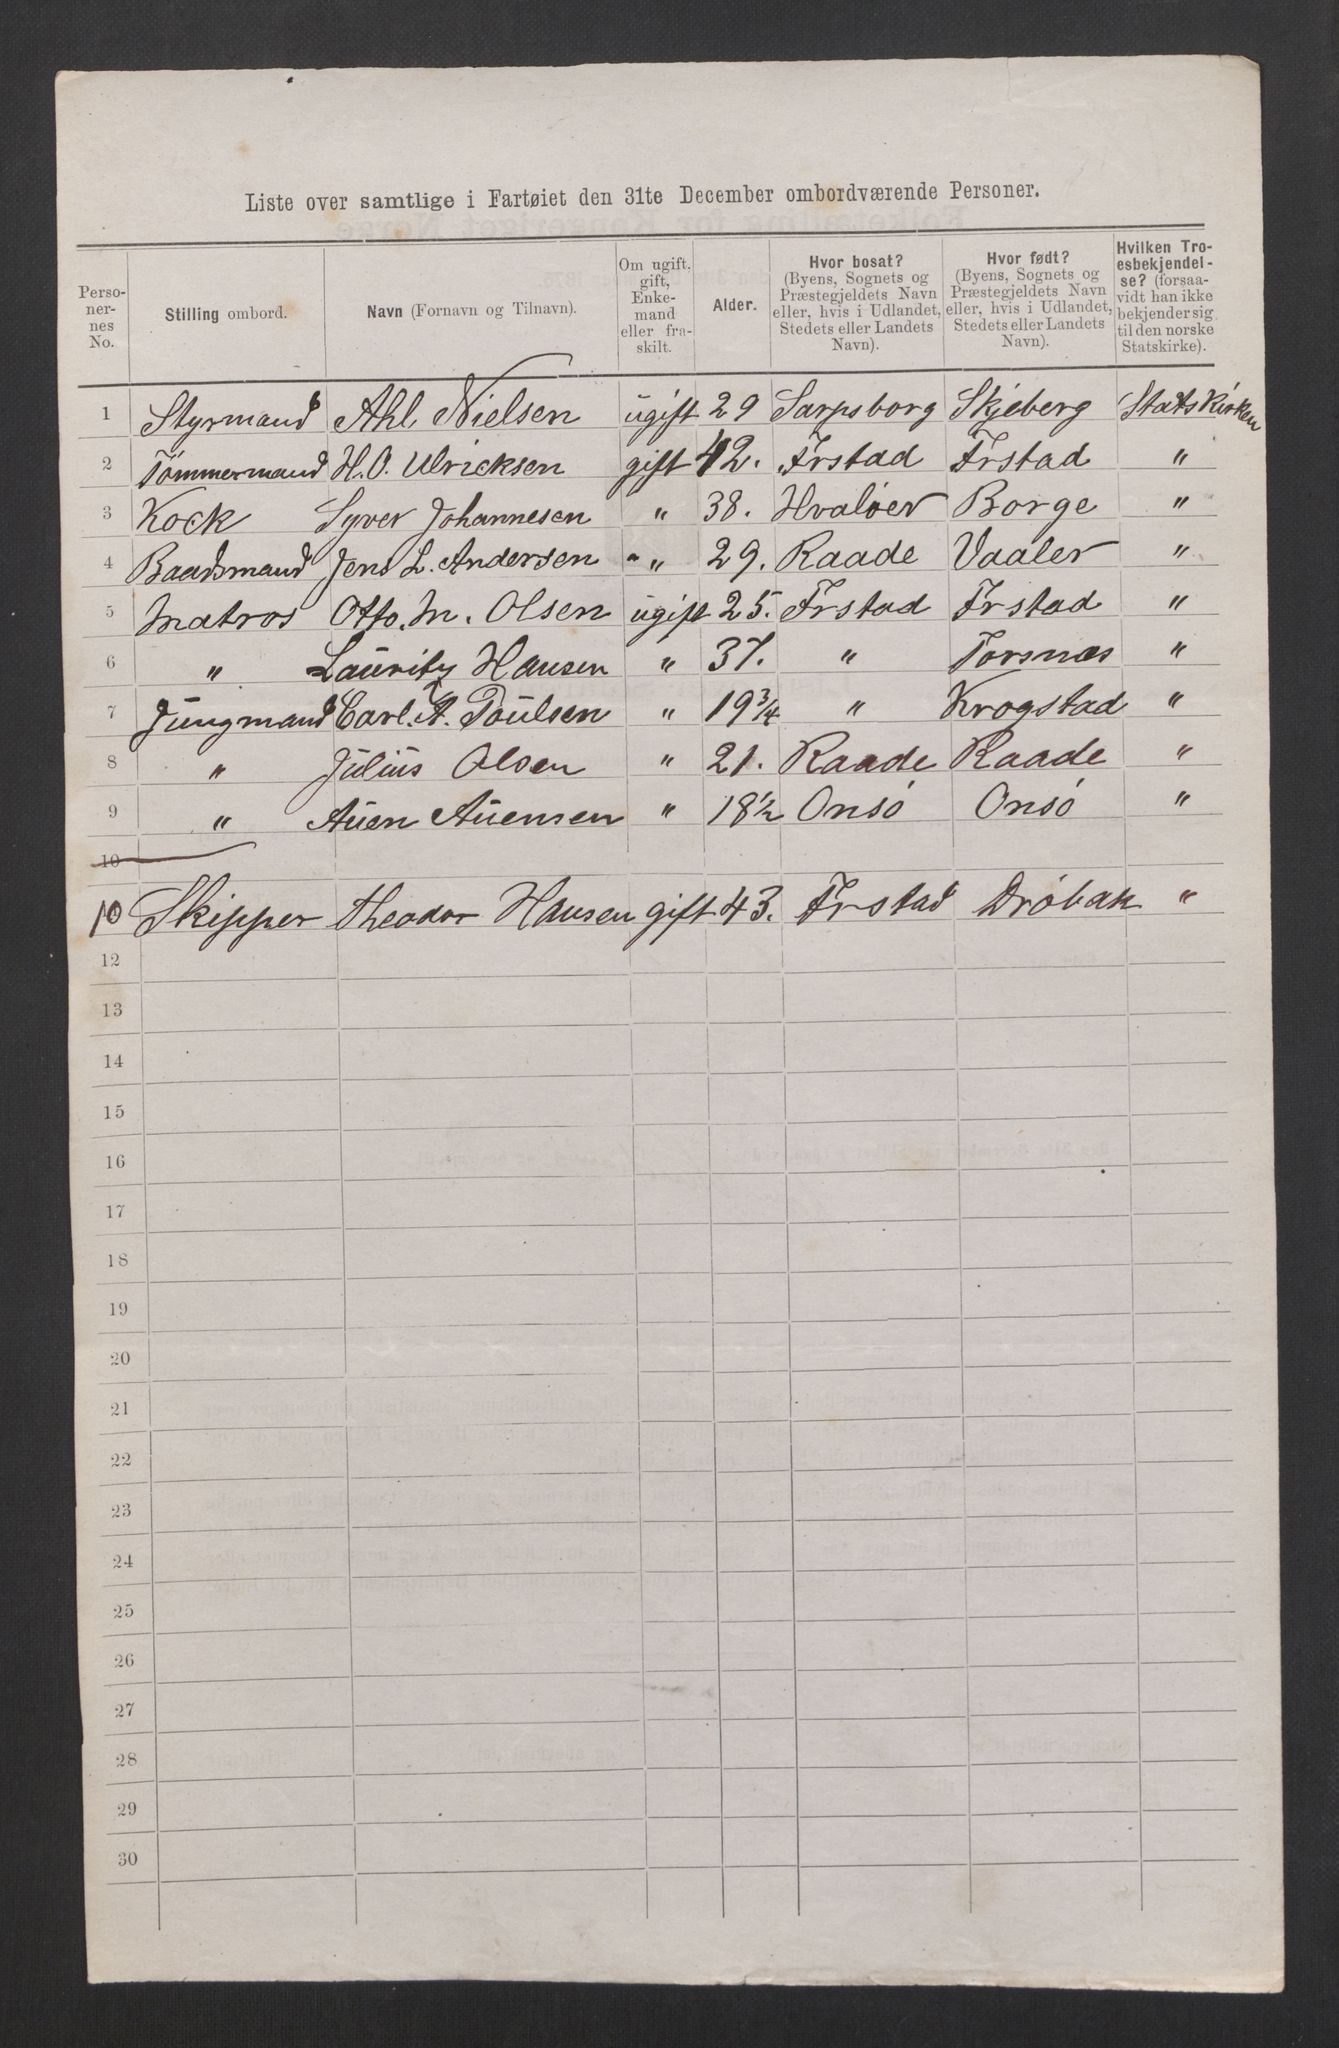 Liste over samtlige i Fartøiet den 31te December ombordværende Personer.
Perso-
ner-
nes
No.
Stilling ombord.
Navn (Fornavn og Tilnavn).
Om ugift,
gift,
Enke-
mand
eller fra-
skilt.
Alder.
Hvor bosat?
(Byens, Sognets og
Præstegjeldets Navn
eller, hvis i Udlandet,
Stedets eller Landets
Navn).
Hvor født?
(Byens, Sognets og
Præstegjeldets Navn
eller, hvis i Udlandet,
Stedets eller Landets
Navn).
Hvilken Tro-
esbekjendel-
se? (forsaa-
vidt han ikke
bekjender sig
til den norske
Statskirke).
1 Styrmand Ahl. Nielsen ugift 29 Sarpsborg Skjeberg Statskirken
2 Tömmermand H.O. Ulricksen gift 42. Frstad Frstad "
3 Kock Syver Johannesen " 38. Hvalöer Borge "
4 Baadsmand Jens L. Andersen " 29. Raade Vaaler "
5 Matros Otto. M. Olsen ugift 25. Frstad Frstad "
6 " Lauritz Hansen " 37. " Torsnæs "
7 Jungmand Carl. A. Poulsen " 19 3/4 " Krogstad "
8 " Julius Olsen " 21. Raade Raade "
9 " Auen Auensen " 18 1/2 Onsö Onsö "
10
10 Skipper Theodor Hansen gift 43. Frstad Dröbak "
12
13
14
15
16
17
18
19
20
21
22
23
24
25
26
27
28
29
30